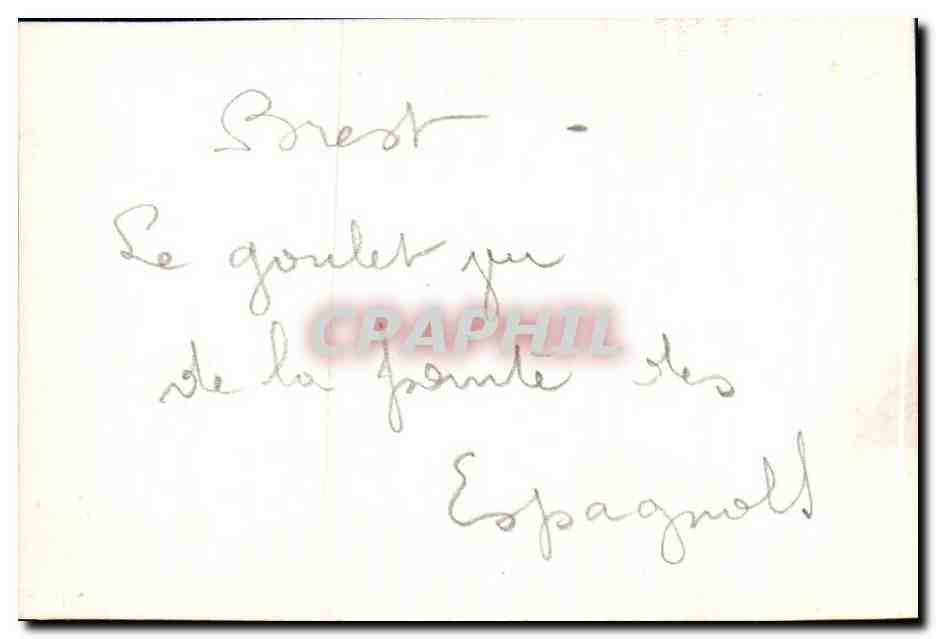 Brest -
Le goulet vu
CPAPHIL
de la pointe des
Espagnols